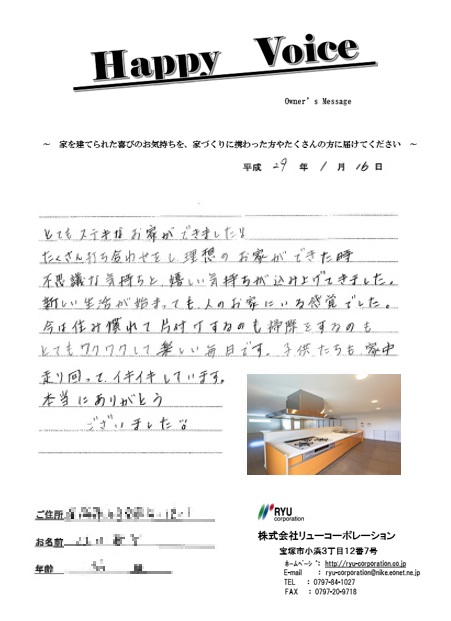 Happy Voice
Owner's Message
～ 家を建てられた喜びのお気持ちを、家づくりに携わった方やたくさんの方に届けてください ～
平成 29 年 1 月 16 日
とてもステキなお家ができました!!
たくさん打ち合わせをし、理想のお家ができた時
不思議な気持ちと、嬉しい気持ちが込み上げてきました。
新しい生活が始まっても、人のお家にいる感覚でした。
今は住み慣れて片付けするのも掃除をするのも
とてもワクワクして楽しい毎日です。子供たちも、家中
走り回って、イキイキしています。
本当にありがとう
ございました!!
ご住所
お名前
年齢
RYU
corporation
株式会社リューコーポレーション
宝塚市小浜3丁目12番7号
ホームページ: http://ryu-corporation.co.jp
E-mail : ryu-corporation@nike.eonet.ne.jp
TEL : 0797-84-1027
FAX : 0797-20-9718